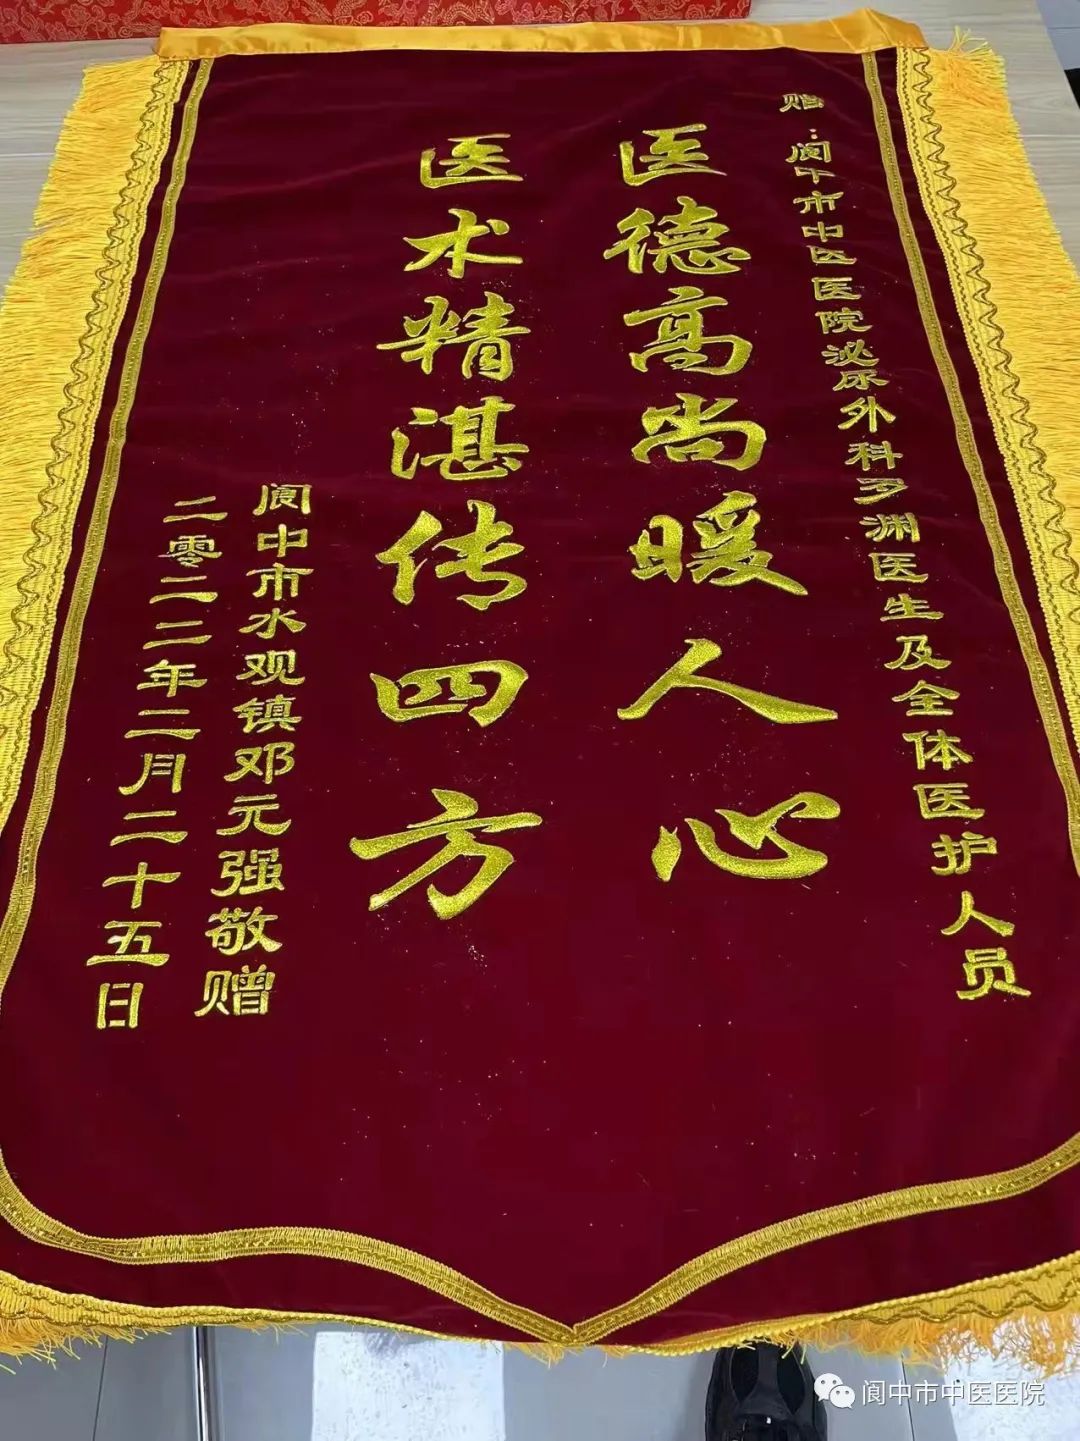 赠:阆中市中医医院泌尿外科罗渊医生及全体医护人员
医德高尚暖人心
医术精湛传四方
阆中市水观镇邓元强敬赠
二零二二年二月二十五日
阆中市中医医院